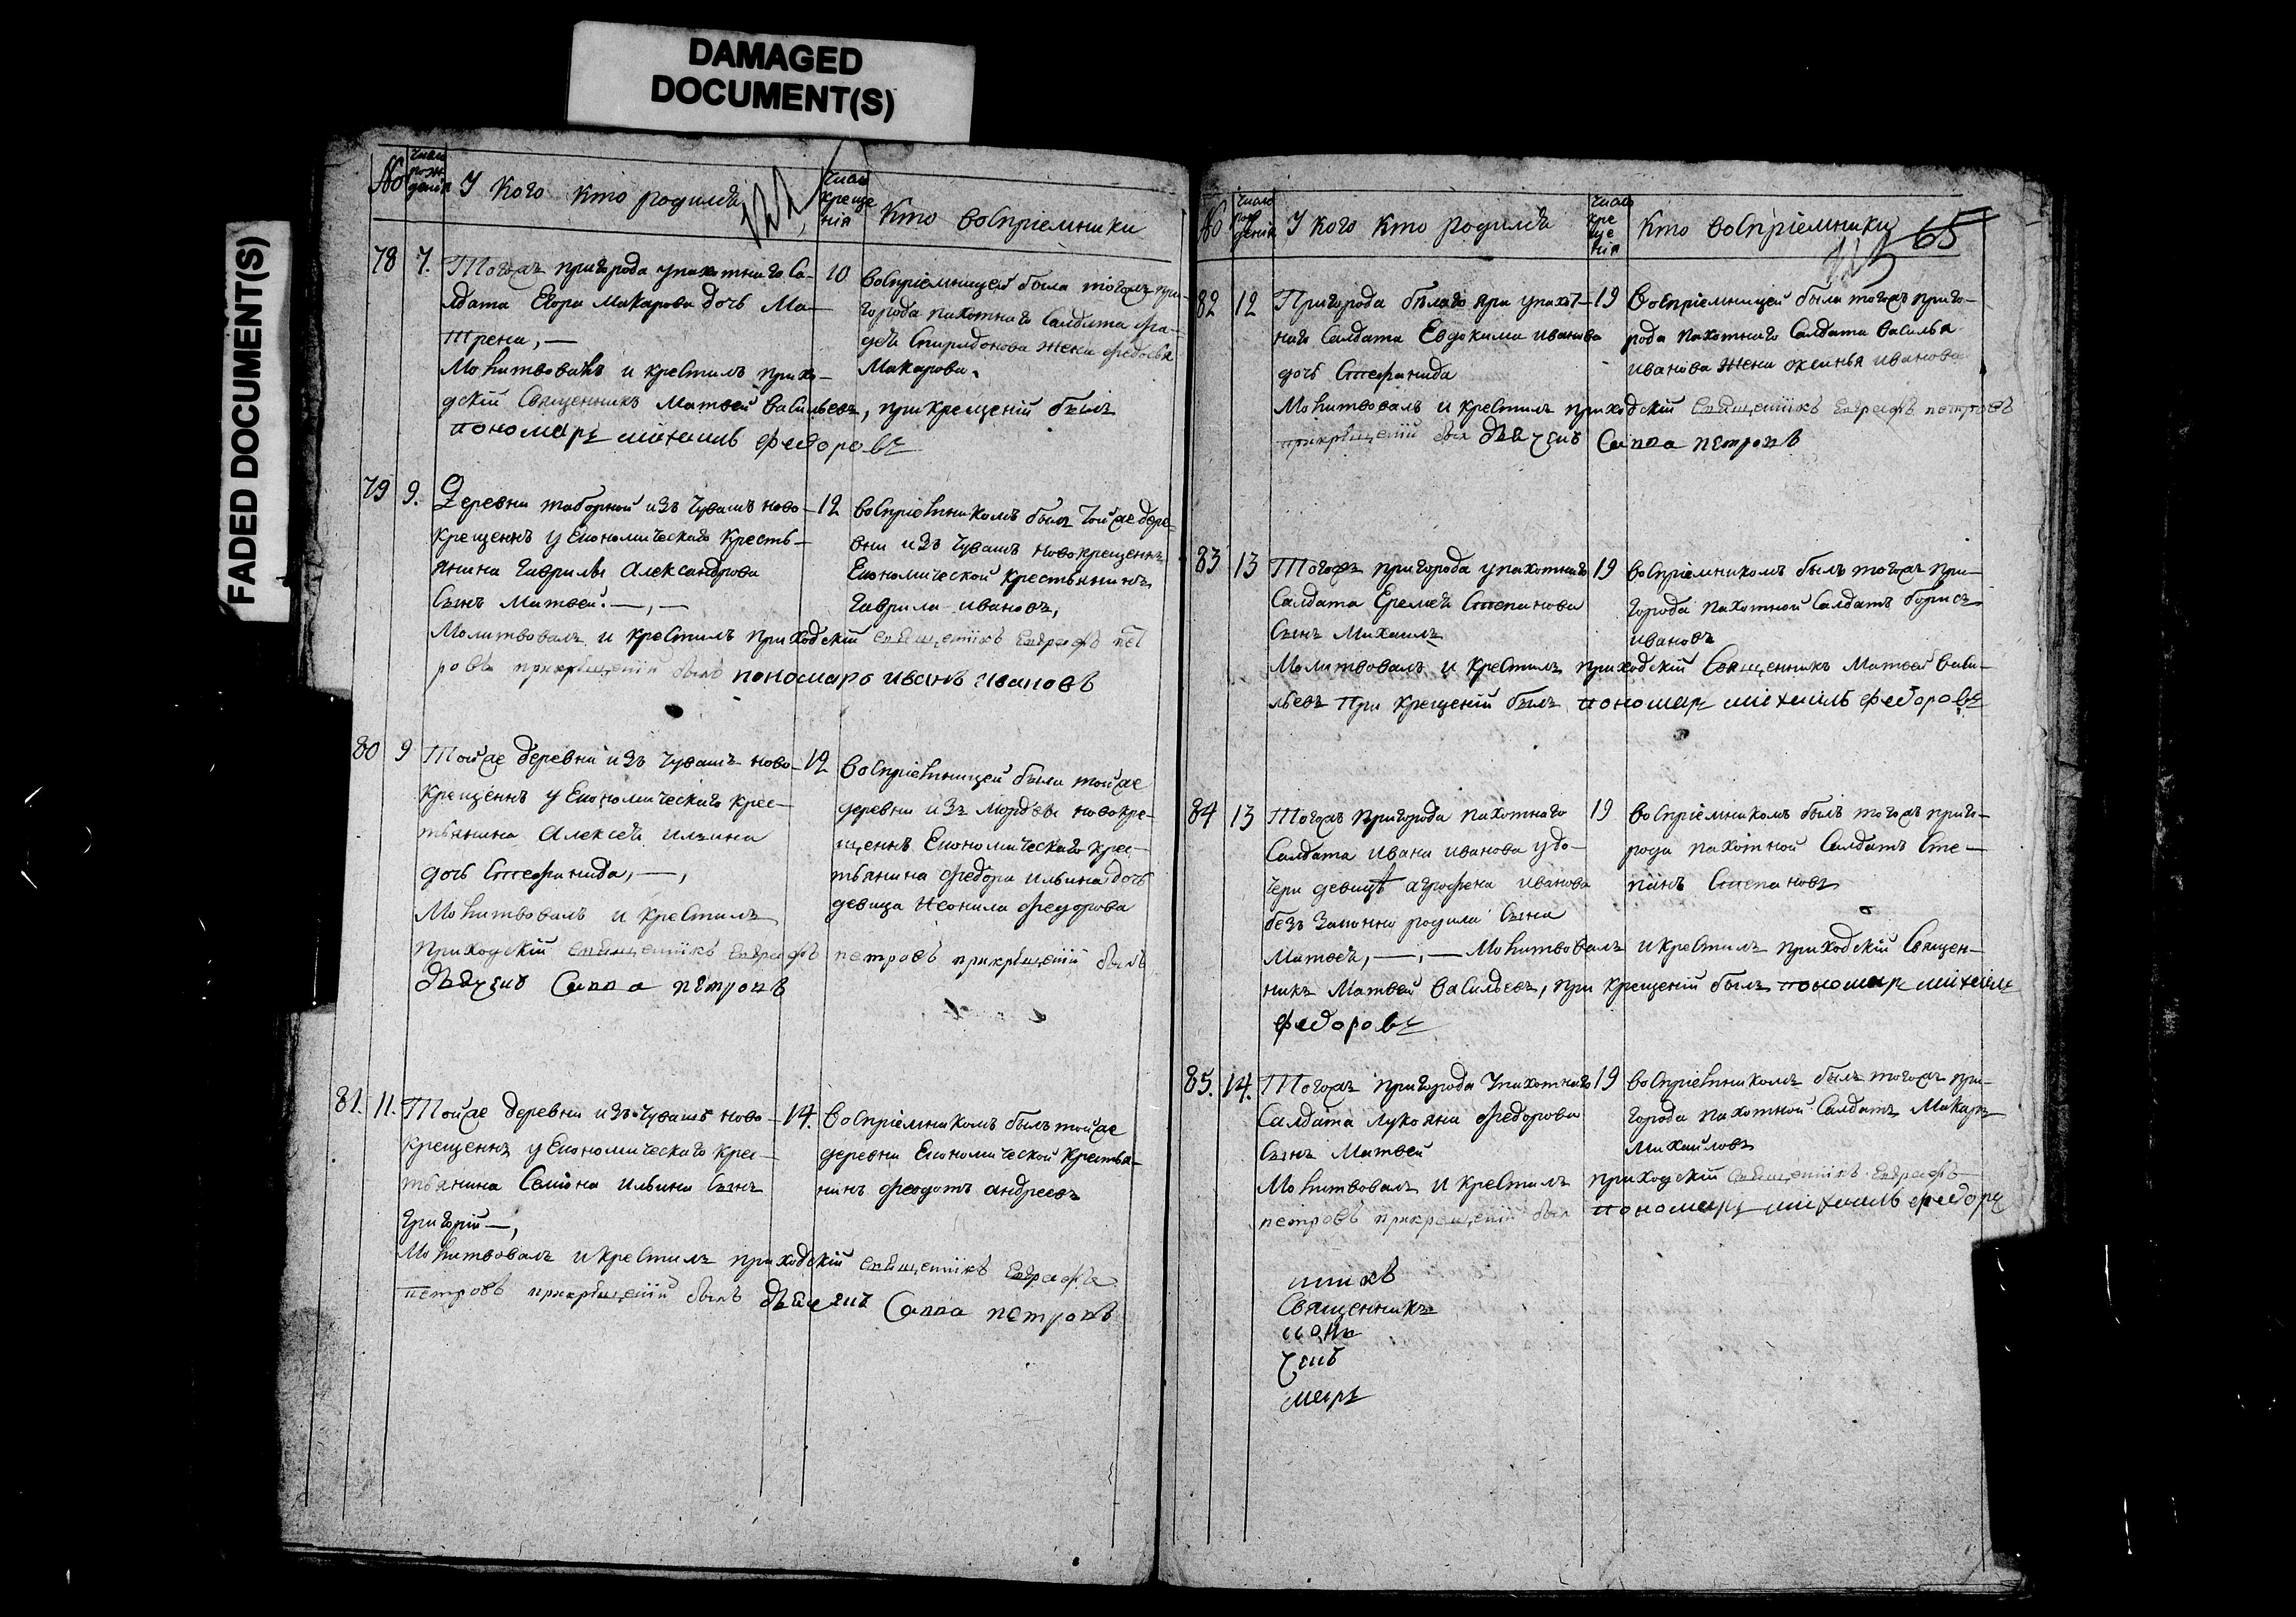 DAMAGED
DOCUMENT(S)
FADED DOCUMENT(S)
№ число рождения У кого кто родилсѧ число крещения Кто восприемники
78 7. Тогожъ пригорода у пахотнаго Са-
лдата Егора Макарова дочь Ма-
трена, —
Молитвовалъ и крестилъ прихо-
дскій Священникъ Матвей Васильевъ, при крещеній былъ
пономарь михаилъ федоровъ
10 восприемницей была тогожъ при-
города пахотнаго Салдата Фа-
дѣя Спиридонова жена Федосья
Макарова.
79 9. Деревни таборной изъ Чувашъ ново-
крещенъ у Економическаго Кресть-
янина Гаврилы Александрова
Сынъ Матвей. —, —
Молитвовалъ и крестилъ приходскій священникъ Евграфъ пет
ровъ прикрещеніи былъ пономарь иванъ ивановъ
12 восприемникомъ былъ тойже дере-
вни изъ Чувашъ новокрещенъ
Економической крестьянинъ
Гаврила ивановъ,
80 9 Тойже деревни изъ Чувашъ ново-
крещенъ у Економическаго крес-
тьянина Алексея ильина
дочь Стефанида, —,
Молитвовалъ и крестилъ
приходскій священникъ Евграфъ петровъ прикрещеніи былъ
дьячекъ Савва петровъ
12 восприемницей была тойже
деревни изъ Мордвы новокре-
щенъ Економическаго крес-
тьянина Федора ильина дочь
девица Неонила Федорова
81. 11. Тойже деревни изъ Чувашъ ново-
крещенъ у Економическаго крес-
тьянина Семиона ильина Сынъ
Григорій —,
Молитвовалъ и крестилъ приходскій священникъ Евграфъ
петровъ прикрещеніи былъ дьячекъ Савва петровъ
14. восприемникомъ былъ тойже
деревни Економической Крестья-
нинъ Феодотъ андреевъ
№ число рождения У кого кто родилсѧ число крещения Кто восприемники 65
82 12 Пригорода бѣлаго яра у пахот-
наго Салдата Евдокима иванова
дочь Стефанида
Молитвовалъ и крестилъ приходскій священникъ Евграфъ петровъ
прикрещеніи был дьячекъ Савва петровъ
19 восприемницей была тогожъ приго-
рода пахотнаго Салдата василья
иванова жена ксинья иванова
83 13 Тогожъ пригорода у пахотнаго
Салдата Еремея Степанова
Сынъ Михаилъ
Молитвовалъ и крестилъ приходскій Священникъ Матвей васи-
льевъ При крещеній былъ пономарь михаилъ федоровъ
19 восприемникомъ былъ тогожъ при-
города пахотной Салдатъ борисъ
ивановъ
84 13 Тогожъ пригорода пахотнаго
Салдата ивана иванова у до-
чери девицы агрофена иванова
безъ Законно родила Сына
Матвея, —, — Молитвовалъ и крестилъ приходскій Священ-
никъ Матвей васильевъ, при крещеній былъ пономарь михаилъ
федоровъ
19 восприемникомъ былъ тогожъ приго-
рода пахотной Салдатъ Сте-
панъ Степановъ
85. 14. Тогожъ пригорода у пахотнаго
Салдата Лукояна Федорова
Сынъ Матвей
Молитвовалъ и крестилъ приходскій священникъ Евграфъ
петровъ прикрещеніи был пономарь михаилъ федоръ
19 восприемникомъ былъ тогожъ при-
города пахотной Салдатъ Макаръ
Михайловъ
Священникъ
чекъ
марь